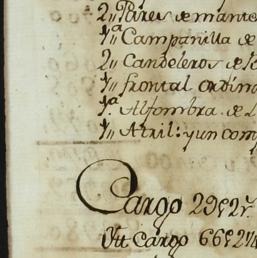 2,, Pares de mante
1ª Campanilla de
2,, Candeleros de
1,, frontal ordina
1ª. Alfombra de L
1,, Atril: y un com
Cargo 2952r.
Cargo